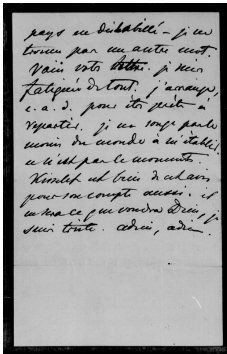 pays en déshabillé – je ne
trouve pas un autre mot
Vain votre je suis
fatiguée de tout. j'arrange,
c. a. d. pour être prête à
repartir. je ne songe pas le
moins du monde à m'établir
ce n'est pas le moment.
Kisseleff est bien de cet avis
pour son compte aussi. il
en sera ce que voudra Dieu, je
suis triste. adieu, adieu.